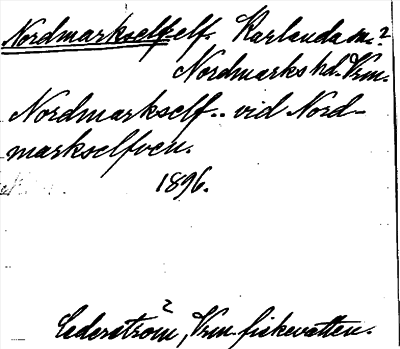 Nordmarkself. elf. Karlanda sn.?
Nordmarks hd. Vrm.
Nordmarkself.. vid Nord-
markselfven.
1896.
Cederström, Vrm. fiskevatten.